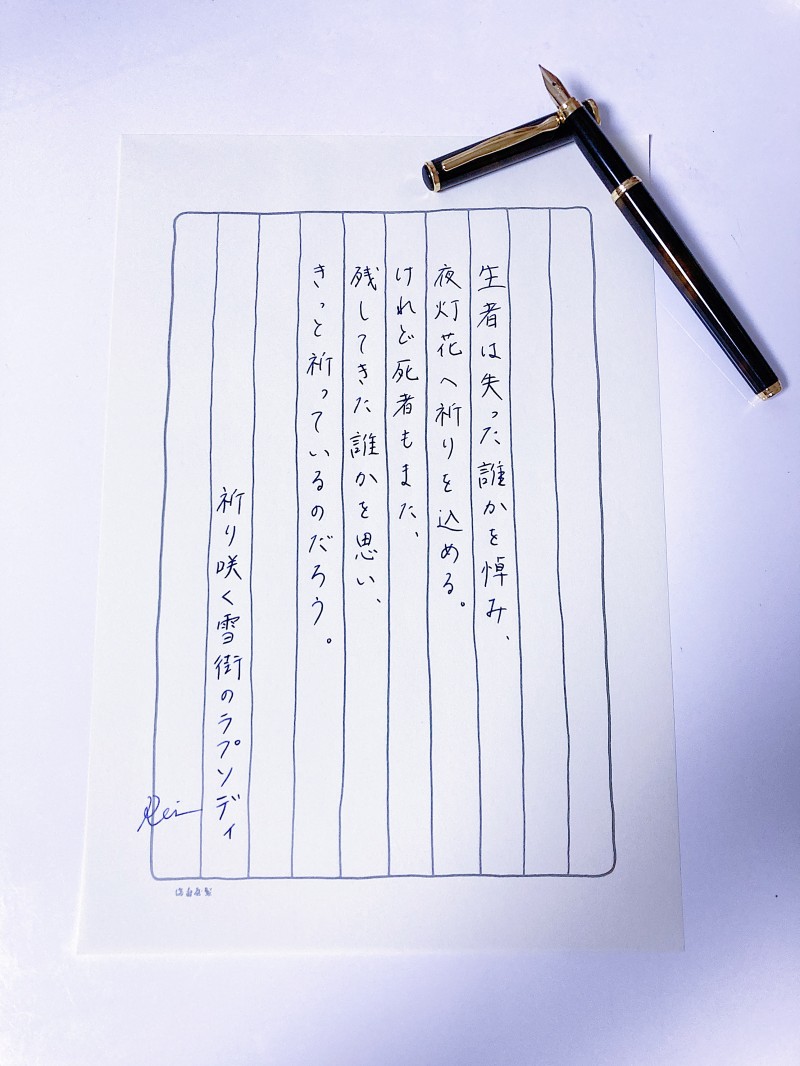 生者は失った誰かを悼み、
夜灯花へ祈りを込める。
けれど死者もまた、
残してきた誰かを思い、
きっと祈っているのだろう。
祈り咲く雪街のラプソディ
Rei